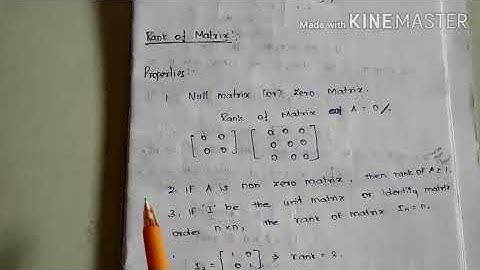 Made with KINEMASTER
Rank of Matrix:
Properties:-
1. Null matrix (or) zero matrix.
Rank of Matrix A = 0/.
[0 0 0 0] [0 0 0 0 0 0 0 0 0]
2. if A is non zero matrix, then rank of A ≥ 1.
3. if 'I' be the unit matrix or identity matrix
order n×n, the rank of matrix In = n.
I2 = [1 0 0 1] ⇒ rank = 2.